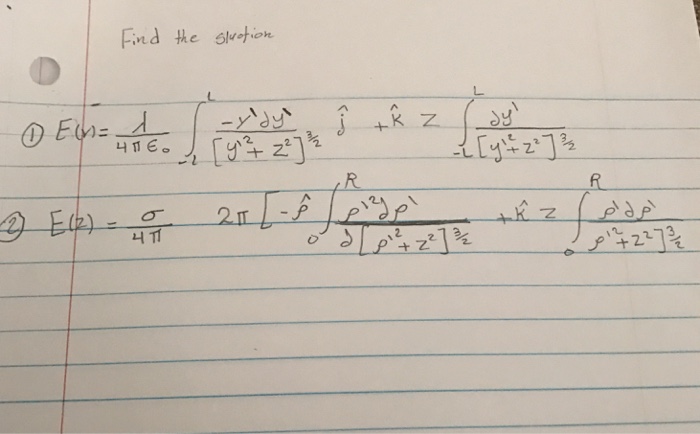 Find the slution
① E(r)= λ/4πϵ₀ ∫_{-L}^{L} -y'dy'/[y'²+z²]^{3/2} ĵ +k̂ z ∫_{-L}^{L} dy'/[y'²+z²]^{3/2}
② E(z) = σ/4π 2π [-ρ̂ ∫_0^R ρ'²dρ'/∂[ρ'²+z²]^{3/2} +k̂ z ∫_0^R ρ'dρ'/ρ'²+z²]^{3/2}